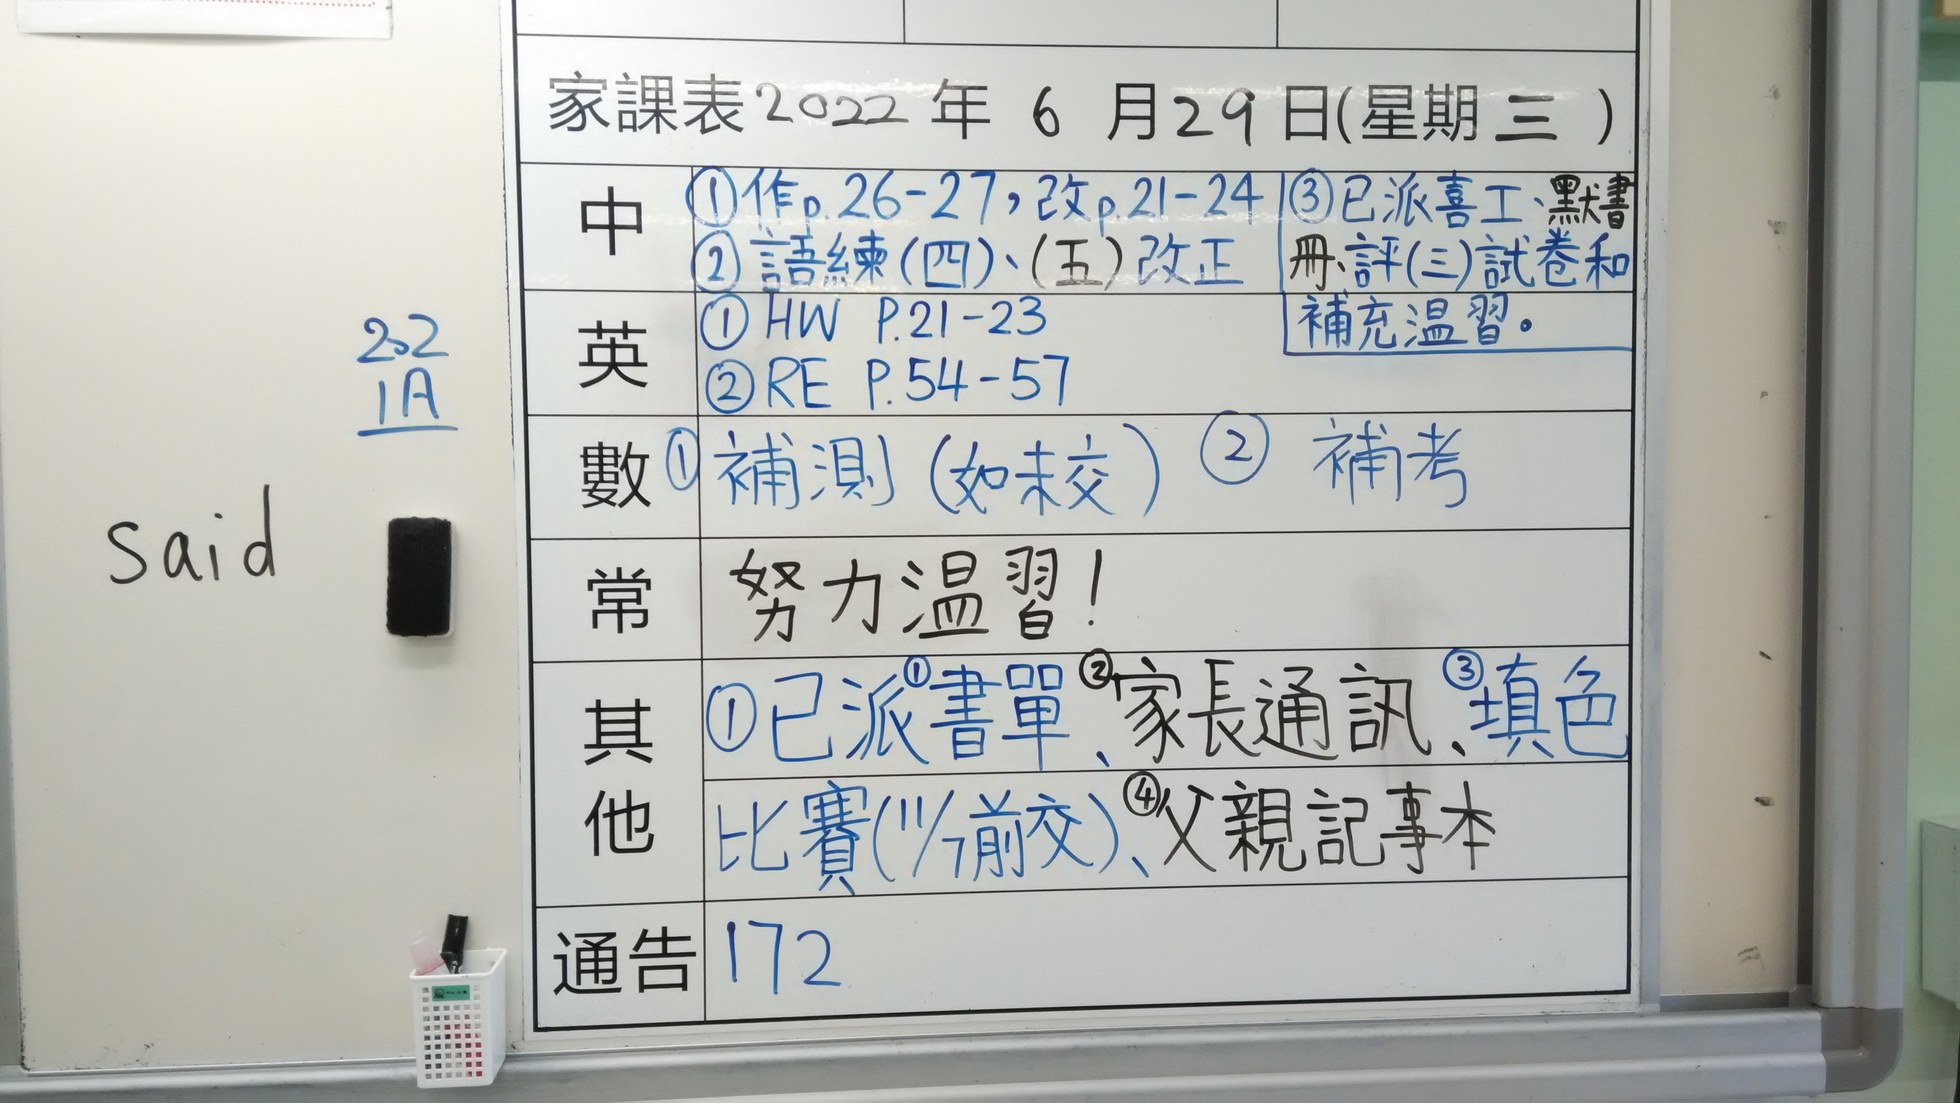 家課表2022年 6 月29日(星期三)
中
①作p.26-27，改p.21-24
②語練(四)、(五)改正
③已派喜工、默書
冊、評(三)試卷和
補充温習。
英
①HW P.21-23
②RE P.54-57
數
①補測(如未交) ② 補考
常
努力温習!
其他
①已派①書單、②家長通訊、③填色
比賽(11/7前交)、④父親記事本
通告
172
202
1A
said